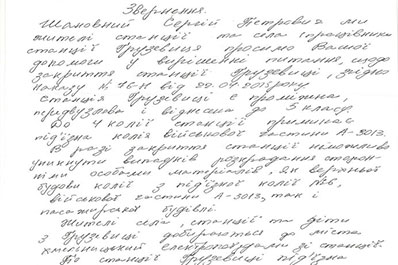 Звернення.
Шановний Сергій Петрович ми
жителі станції та села і працівники
станції Грузевиця просимо Вашої
допомоги у вирішенні питання, щодо
закриття станції Грузевиця, згідно
Наказу № 76-Н від 22.04 2015 року
Станція Грузевиця є проміжна,
передвузлова і віднесена до 5 класу.
До 4 колії станції примикає
під'їзна колія військової частини А-3013.
В разі закриття станції неможливо
уникнути випадків розкрадання сторон-
німи особами матеріалів, як верхньої
будови колії з під'їзної колії №6,
військової частини А-3013, так і
пасажирської будівлі.
Жителі села, станції та діти
з Грузевиці добираються до міста
Хмельницький електропоїздами зі станції.
По станції Грузевиця під'їзна